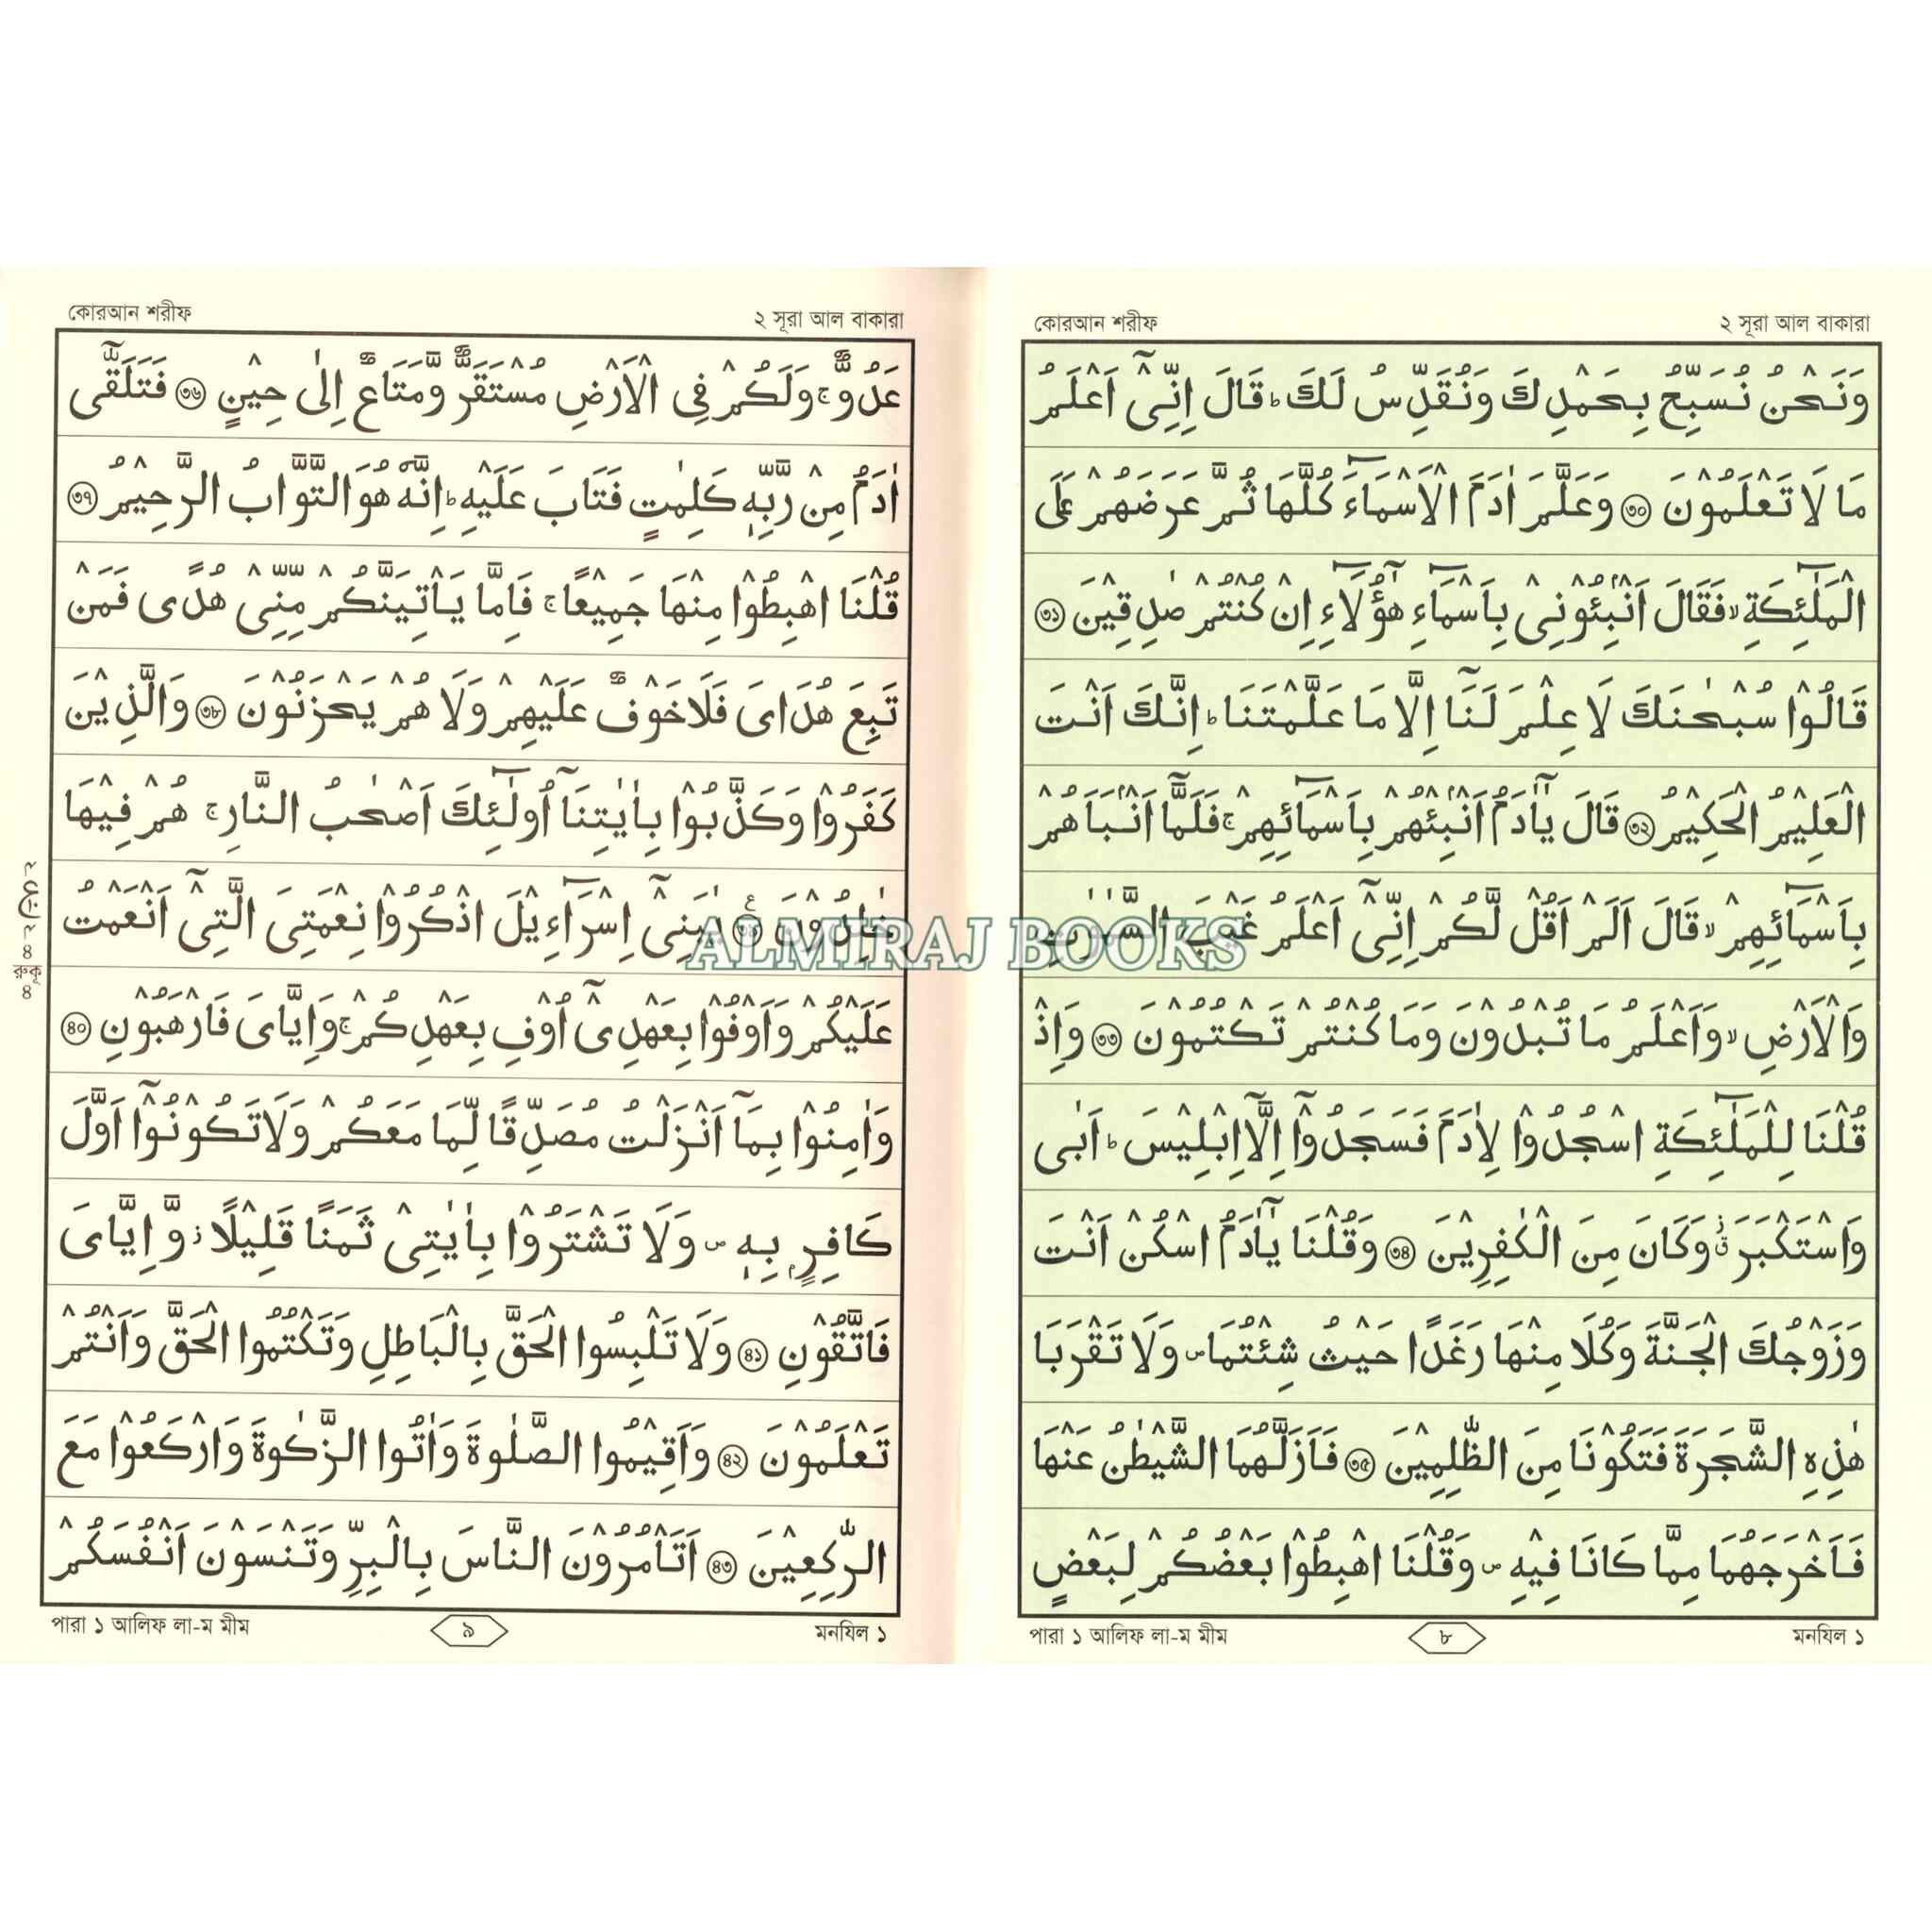 কোরআন শরীফ
২ সূরা আল বাকারা
وَنَحْنُ نُسَبِّحُ بِحَمْدِكَ وَنُقَدِّسُ لَكَ ؕ قَالَ اِنِّیْۤ اَعْلَمُ
مَا لَا تَعْلَمُوْنَ ﴿৩০﴾ وَعَلَّمَ اٰدَمَ الْاَسْمَآءَ كُلَّهَا ثُمَّ عَرَضَهُمْ عَلَی
الْمَلٰٓئِكَةِ ۙ فَقَالَ اَنْۢبِئُوْنِیْ بِاَسْمَآءِ هٰۤؤُلَآءِ اِنْ كُنْتُمْ صٰدِقِیْنَ ﴿৩১﴾
قَالُوْا سُبْحٰنَكَ لَا عِلْمَ لَنَاۤ اِلَّا مَا عَلَّمْتَنَا ؕ اِنَّكَ اَنْتَ
الْعَلِیْمُ الْحَكِیْمُ ﴿৩২﴾ قَالَ یٰۤاٰدَمُ اَنْۢبِئْهُمْ بِاَسْمَآئِهِمْ ۚ فَلَمَّاۤ اَنْۢبَاَهُمْ
بِاَسْمَآئِهِمْ ۙ قَالَ اَلَمْ اَقُلْ لَّكُمْ اِنِّیْۤ اَعْلَمُ غَیْبَ السَّمٰوٰتِ
وَالْاَرْضِ ۙ وَاَعْلَمُ مَا تُبْدُوْنَ وَمَا كُنْتُمْ تَكْتُمُوْنَ ﴿৩৩﴾ وَاِذْ
قُلْنَا لِلْمَلٰٓئِكَةِ اسْجُدُوْا لِاٰدَمَ فَسَجَدُوْۤا اِلَّاۤ اِبْلِیْسَ ؕ اَبٰی
وَاسْتَكْبَرَ ۫ۗ وَكَانَ مِنَ الْكٰفِرِیْنَ ﴿৩৪﴾ وَقُلْنَا یٰۤاٰدَمُ اسْكُنْ اَنْتَ
وَزَوْجُكَ الْجَنَّةَ وَكُلَا مِنْهَا رَغَدًا حَیْثُ شِئْتُمَا ۪ وَلَا تَقْرَبَا
هٰذِهِ الشَّجَرَةَ فَتَكُوْنَا مِنَ الظّٰلِمِیْنَ ﴿৩৫﴾ فَاَزَلَّهُمَا الشَّیْطٰنُ عَنْهَا
فَاَخْرَجَهُمَا مِمَّا كَانَا فِیْهِ ۪ وَقُلْنَا اهْبِطُوْا بَعْضُكُمْ لِبَعْضٍ
পারা ১ আলিফ লা-ম মীম
৮
মনযিল ১
কোরআন শরীফ
২ সূরা আল বাকারা
عَدُوٌّ ۚ وَلَكُمْ فِی الْاَرْضِ مُسْتَقَرٌّ وَّمَتَاعٌ اِلٰی حِیْنٍ ﴿৩৬﴾ فَتَلَقّٰۤی
اٰدَمُ مِنْ رَّبِّهٖ كَلِمٰتٍ فَتَابَ عَلَیْهِ ؕ اِنَّهٗ هُوَ التَّوَّابُ الرَّحِیْمُ ﴿৩৭﴾
قُلْنَا اهْبِطُوْا مِنْهَا جَمِیْعًا ۚ فَاِمَّا یَاْتِیَنَّكُمْ مِّنِّیْ هُدًی فَمَنْ
تَبِعَ هُدَایَ فَلَا خَوْفٌ عَلَیْهِمْ وَلَا هُمْ یَحْزَنُوْنَ ﴿৩৮﴾ وَالَّذِیْنَ
كَفَرُوْا وَكَذَّبُوْا بِاٰیٰتِنَاۤ اُولٰٓئِكَ اَصْحٰبُ النَّارِ ۚ هُمْ فِیْهَا
خٰلِدُوْنَ ﴿৩৯﴾ یٰبَنِیْۤ اِسْرَآءِیْلَ اذْكُرُوْا نِعْمَتِیَ الَّتِیْۤ اَنْعَمْتُ
عَلَیْكُمْ وَاَوْفُوْا بِعَهْدِیْۤ اُوْفِ بِعَهْدِكُمْ ۚ وَاِیَّایَ فَارْهَبُوْنِ ﴿৪০﴾
وَاٰمِنُوْا بِمَاۤ اَنْزَلْتُ مُصَدِّقًا لِّمَا مَعَكُمْ وَلَا تَكُوْنُوْۤا اَوَّلَ
كَافِرٍۭ بِهٖ ۪ وَلَا تَشْتَرُوْا بِاٰیٰتِیْ ثَمَنًا قَلِیْلًا ۫ وَّاِیَّایَ
فَاتَّقُوْنِ ﴿৪১﴾ وَلَا تَلْبِسُوا الْحَقَّ بِالْبَاطِلِ وَتَكْتُمُوا الْحَقَّ وَاَنْتُمْ
تَعْلَمُوْنَ ﴿৪২﴾ وَاَقِیْمُوا الصَّلٰوةَ وَاٰتُوا الزَّكٰوةَ وَارْكَعُوْا مَعَ
الرّٰكِعِیْنَ ﴿৪৩﴾ اَتَاْمُرُوْنَ النَّاسَ بِالْبِرِّ وَتَنْسَوْنَ اَنْفُسَكُمْ
৪
রুকূ
৪
পারা ১ আলিফ লা-ম মীম
৯
মনযিল ১
ALMIRAJ BOOKS